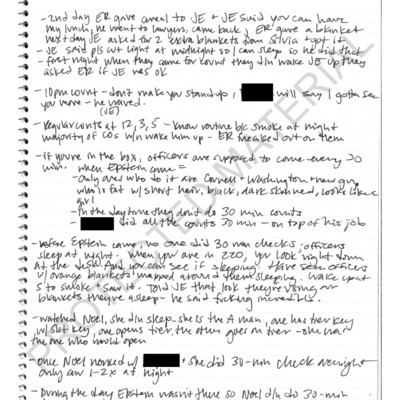 - 2nd day ER gave cereal to JE + JE said you can have
my lunch, he went to lawyers, came back, ER gave a blanket
next day JE asked for 2 extra blankets from Silvia + got it
- JE said pls cut light at midnight so I can sleep so he did that
- first night when they came for count they d/n wake JE up they
asked ER if JE was ok
- 10pm count - don't make you stand up, will say I gotta see
you move - he waved.
(JE)
- Regular counts at 12, 3, 5 - know routine b/c smoke at night
majority of COs w/n wake him up - ER freaked out on them
- if you're in the box, officers are supposed to come every 30
min. when Epstein came -
- only ones who do it are Cornell + Washington + new guy
who is fat w/ short hair, black, dark skinned, looks like a
girl
- in the daytime they don't do 30 min counts
did all the counts 30 min - on top of his job
- before Epstein came, no one did 30 min checks, officers
sleep at night. when you are in 220, you look right down
at the desk and you can see it sleeping. Have seen officers
w/ orange blankets wrapped around them sleeping. wake up at
5 to smoke and see it. Told JE that look they're young w/
blankets they're asleep - he said fucking incredible.
- watched Noel, she d/n sleep - she is the A man, one has tier key
w/ slot key, one opens tier, the other goes in tier - she was
the one who would open
- once Noel worked w/ + she did 30-min check overnight
only saw 1-2x at night
- During the day Epstein wasn't there so Noel d/n do 30-min
PROTECTED MATERIAL